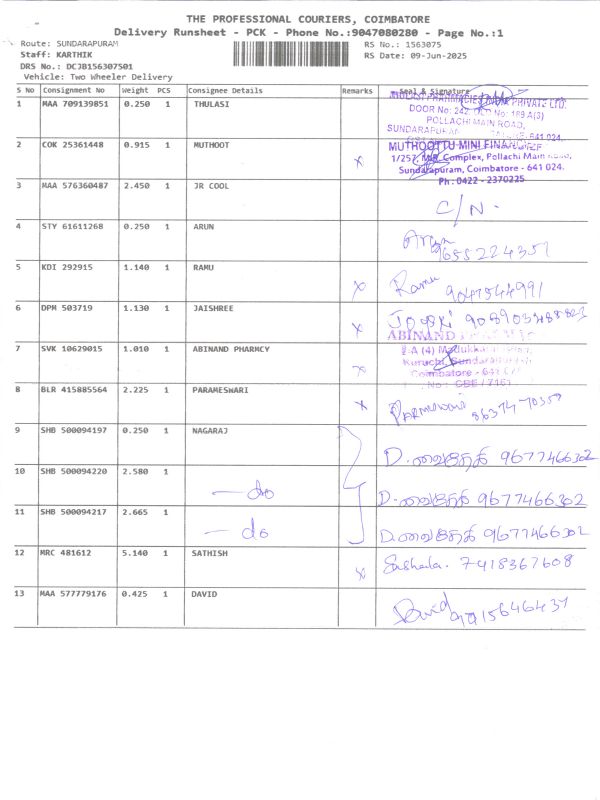 THE PROFESSIONAL COURIERS, COIMBATORE
Delivery Runsheet - PCK - Phone No.:9047080280 - Page No.:1
Route: SUNDARAPURAM
RS No.: 1563075
Staff: KARTHIK
RS Date: 09-Jun-2025
DRS No.: DCJB156307501
Vehicle: Two Wheeler Delivery
S No Consignment No Weight PCS Consignee Details Remarks Seal & Signature
1 MAA 709139851 0.250 1 THULASI
PRIVATE LTD.
DOOR No: 242, OLD No: 189 A(3)
POLLACHI MAIN ROAD,
641 024.
2 COK 25361448 0.915 1 MUTHOOT x
MUTHOOTTU MINI
1/257, Complex, Pollachi Main Road,
Sundarapuram, Coimbatore - 641 024.
Ph : 0422 - 2370225
3 MAA 576360487 2.450 1 JR COOL C/N -
4 STY 61611268 0.250 1 ARUN Arun 9655224357
5 KDI 292915 1.140 1 RAMU x Ramu 9047544991
6 DPM 503719 1.130 1 JAISHREE x
ABINAND
7 SVK 10629015 1.010 1 ABINAND PHARMCY x
Kuruchi, Sundarapuram
Coimbatore -
8 BLR 415885564 2.225 1 PARAMESWARI x
9 SHB 500094197 0.250 1 NAGARAJ D. 9677466302
10 SHB 500094220 2.580 1 — do D. 9677466302
11 SHB 500094217 2.665 1 — do D. 9677466302
12 MRC 481612 5.140 1 SATHISH x Sushela. 7418367608
13 MAA 577779176 0.425 1 DAVID David